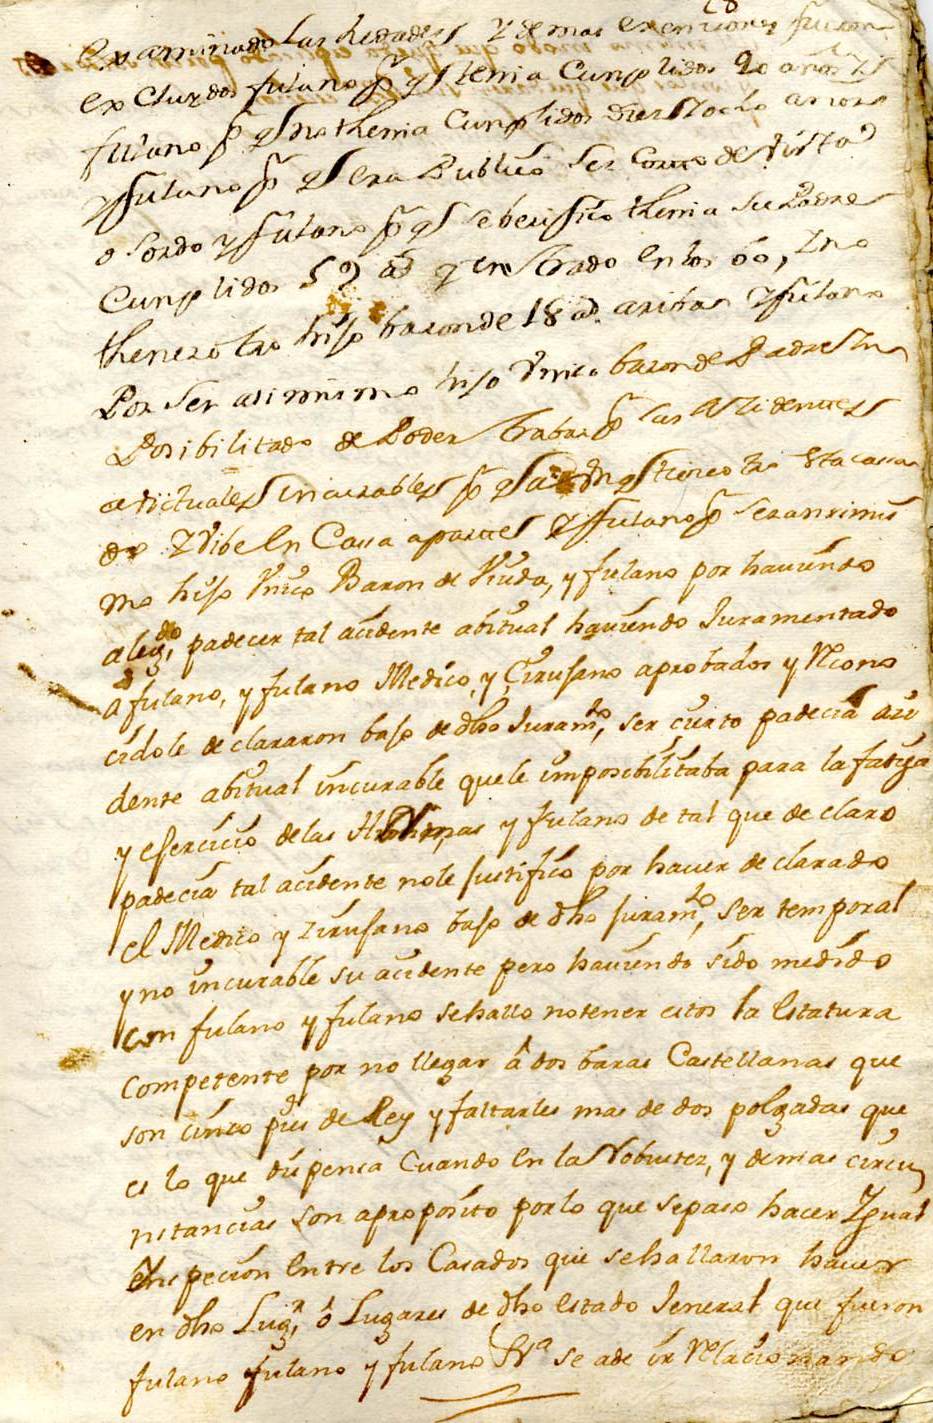 28
Examinado las hedades y demas exenciones fueron
excluydos fulano pr qe tenia Cunplidos 20 años y
fulano pr qe no thenia Cunplidos diez y ocho años
y fulano pr qe era Publico ser corto de vista
o sordo y fulano pr qe se berifico thenia su Padre
Cunplidos 59 ad entrado en los 60, y no
thener otro hijo baron de 18 ad arriba y fulano
Por ser asimismo hijo Unico baron de Padre yn
Posibilitado de Poder trabajar pr las Acidentes
avituales incurables pr qe qe tiene otro esta casa
do y Vibe en Casa aparte y fulano pr ser asimis
mo hijo Unico Baron de Viuda, y fulano por haviendo
alegdo padecer tal acidente abitual haviendo Juramentado
â fulano, y fulano Medico, y Cirujano aprobados y Recono
cidole declararon bajo de dho Juramto, ser cierto padecia aci
dente abitual incurable que le imposibilitaba para la fatiga
y esercicio de las Armas y fulano de tal que declaro
padecia tal acidente no le justifico por haver declarado
el Medico y zirujano bajo de dho juramto, ser temporal
y no incurable su acidente pero haviendo sido medido
con fulano y fulano se hallo no tener estos la Estatura
competente por no llegar â dos baras Castellanas que
son cinco pies de Rey y faltarles mas de dos polgadas que
es lo que dispensa Cuando en la Robustez, y demas circu
nstancias son aproposito por lo que se paso hacer Ygual
Enspecion Entre los Casados que se hallaron haver
en dho Lugr, ô Lugares de dho Estado Jeneral que fueron
fulano fulano y fulano &a se a de ir Relacionando